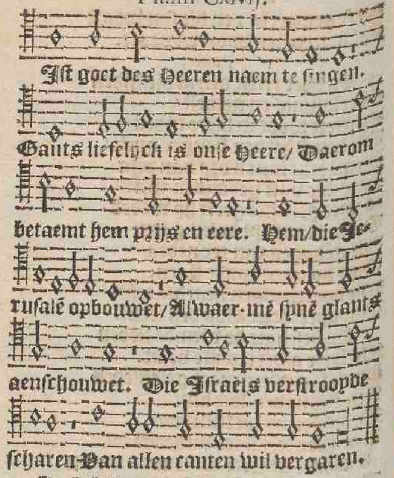 Ist goet des Heeren naem te singen.
Gants liefelyck is onse Heere/ Daerom
betaemt hem prijs en eere. Hem/die Je-
rusalē opbouwet/Alwaer mē synē glants
aenschouwet. Die Israels verstroopde
scharen Van allen canten wil vergaren.